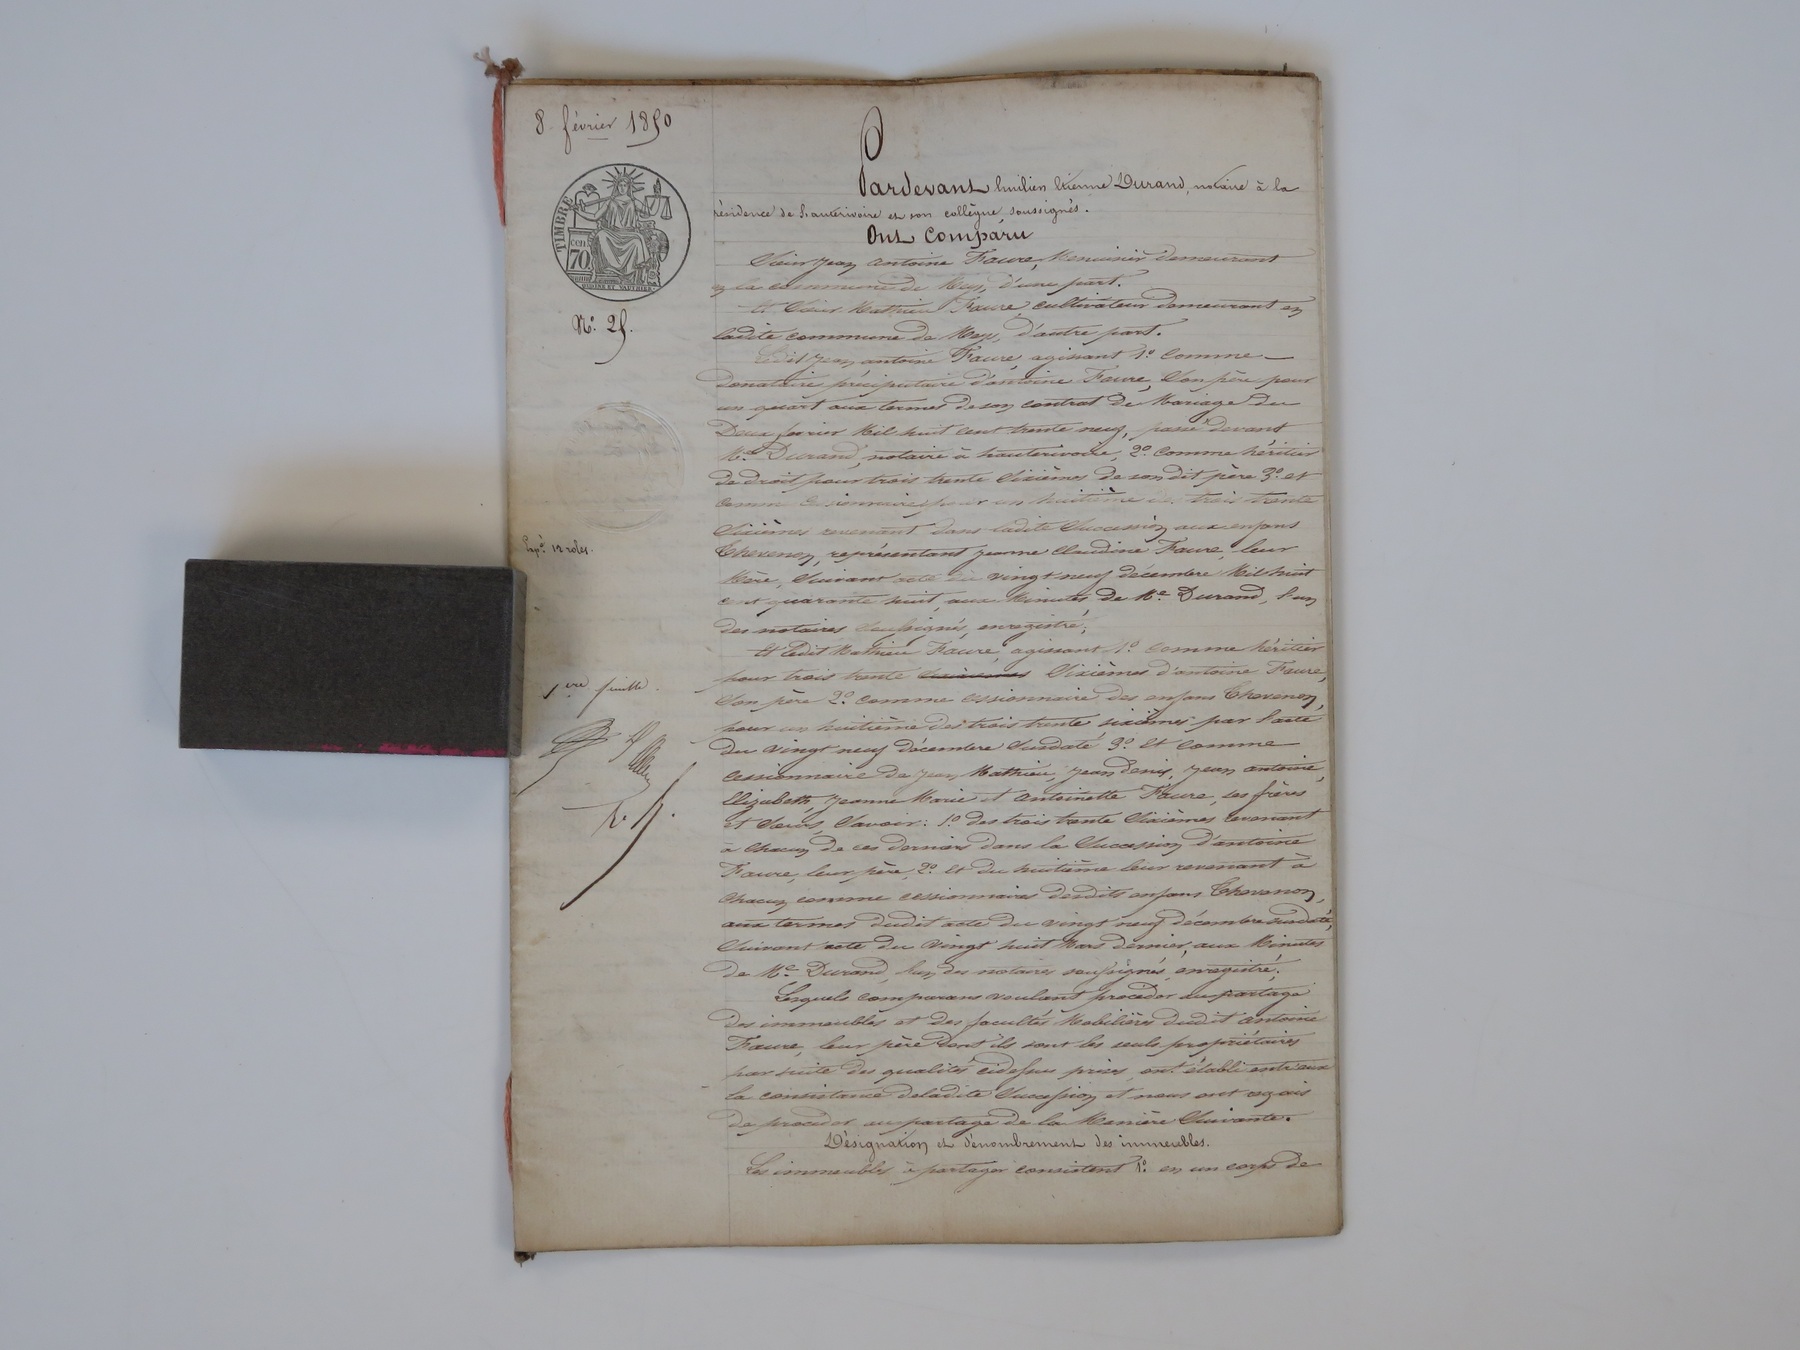 8 février 1850
TIMBRE
cen.
70
N.° 25.
Exp.é 12 roles.
1ere feuille
Pardevant Étienne Durand, notaire à la
résidence de hauterivoire et son collègue soussignés.
Ont Comparu
Sieur Jean Antoine Faure, Menuisier demeurant
en la commune de Meys, d'une part.
Et Sieur Mathieu Faure, cultivateur demeurant en
ladite commune de Meys, d'autre part.
Ledit Jean antoine Faure, agissant 1.° Comme
donataire préciputaire d'antoine Faure, Son père pour
un quart aux termes de son contrat de Mariage du
Deux février Mil huit cent trente neuf, passé devant
Me. Durand, notaire à hauterivoire, 2.° Comme héritier
de droit pour trois trente Sixièmes de son dit père 3.° et
comme cessionnaire pour un huitième des trois trente
Sixièmes revenant dans ladite Succession aux enfans
Thevenon, représentant jeanne Claudine Faure, leur
Mère, Suivant acte du vingt neuf décembre Mil huit
cent quarante huit, aux Minutes de Me. Durand, l'un
des notaires soussignés, enregistré;
Et Ledit Mathieu Faure, agissant 1.° Comme héritier
pour trois trente Sixièmes d'antoine Faure,
Son père 2.° comme cessionnaire des enfans Thevenon,
pour un huitième des trois trente sixièmes par l'acte
du vingt neuf décembre Susdaté 3.° Et comme
cessionnaire de Jean Mathieu, Jean denis, Jean antoine,
Elizabeth, Jeanne Marie et Antoinette Faure, ses frères
et Sœurs, Savoir: 1.° des trois trente Sixièmes revenant
à chacun de ces derniers dans la Succession d'antoine
Faure, leur père, 2.° Et du huitième leur revenant à
chacun comme cessionnaires desdits enfans Thevenon,
aux termes dudit acte du vingt neuf décembre susdaté,
Suivant acte du vingt huit Mars dernier, aux Minutes
de Me. Durand, l'un des notaires soussignés, enregistré;
Lesquels comparans voulant procéder au partage
des immeubles et des facultés Mobilières dudit antoine
Faure, leur père dont ils sont les seuls propriétaires
par suite des qualités cidessus prises, ont établi entr'eux
la consistance deladite Succession et nous ont requis
de procéder au partage de la Manière Suivante.
Désignation et dénombrement des immeubles.
Les immeubles à partager consistent 1.° en un corps de